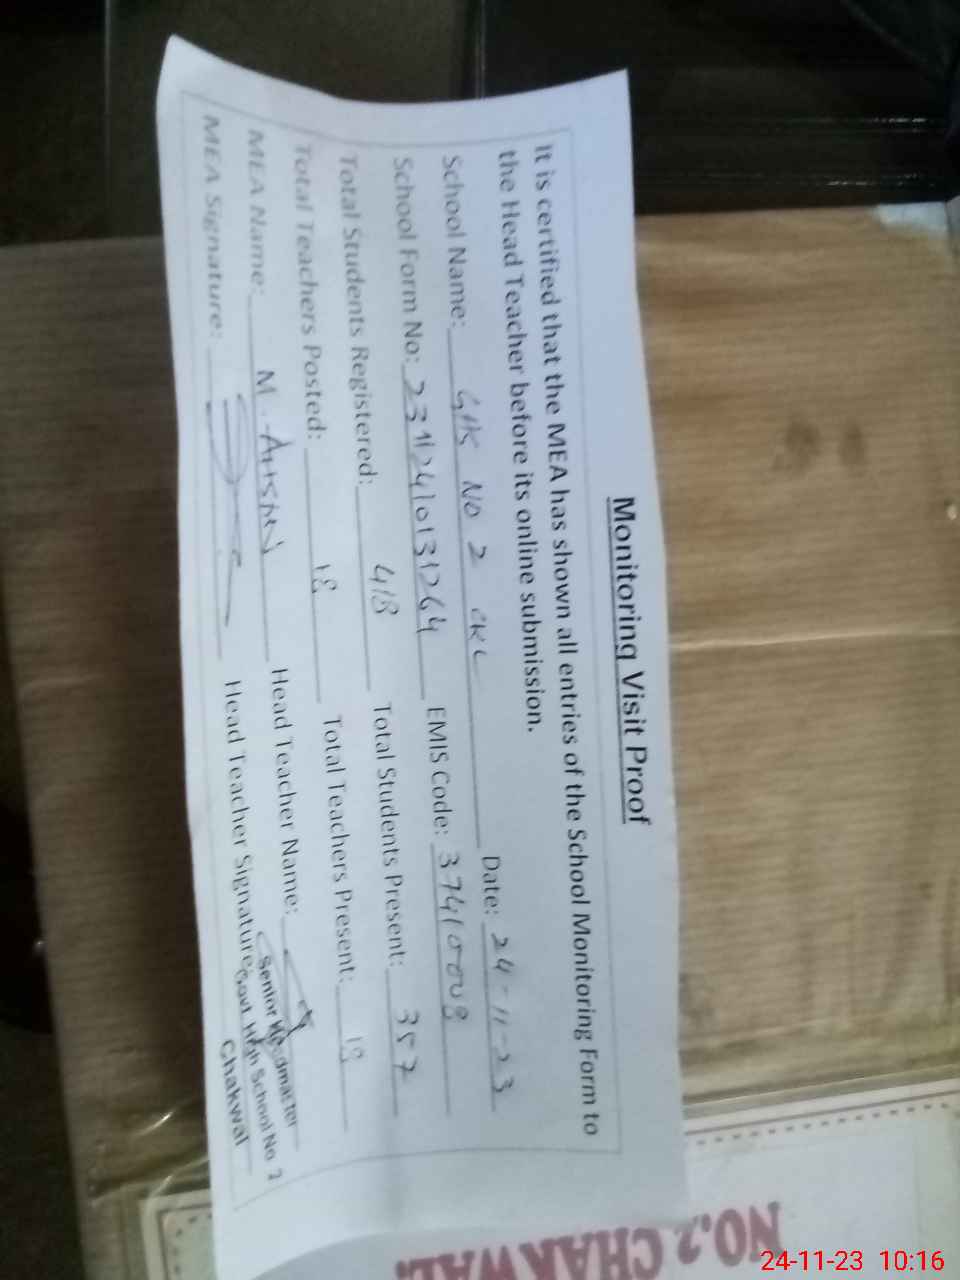 Monitoring Visit Proof
It is certified that the MEA has shown all entries of the School Monitoring Form to
the Head Teacher before its online submission.
School Name: GHS NO 2 CKL Date: 24-11-23
School Form No: 23112410131264 EMIS Code: 37410008
Total Students Registered: 418 Total Students Present: 357
Total Teachers Posted: 18 Total Teachers Present: 18
MEA Name: M. Head Teacher Name:
MEA Signature: Head Teacher Signature:
Senior Headmaster
Govt. High School No. 2
Chakwal
NO.2 CHAKWAL.
24-11-23 10:16